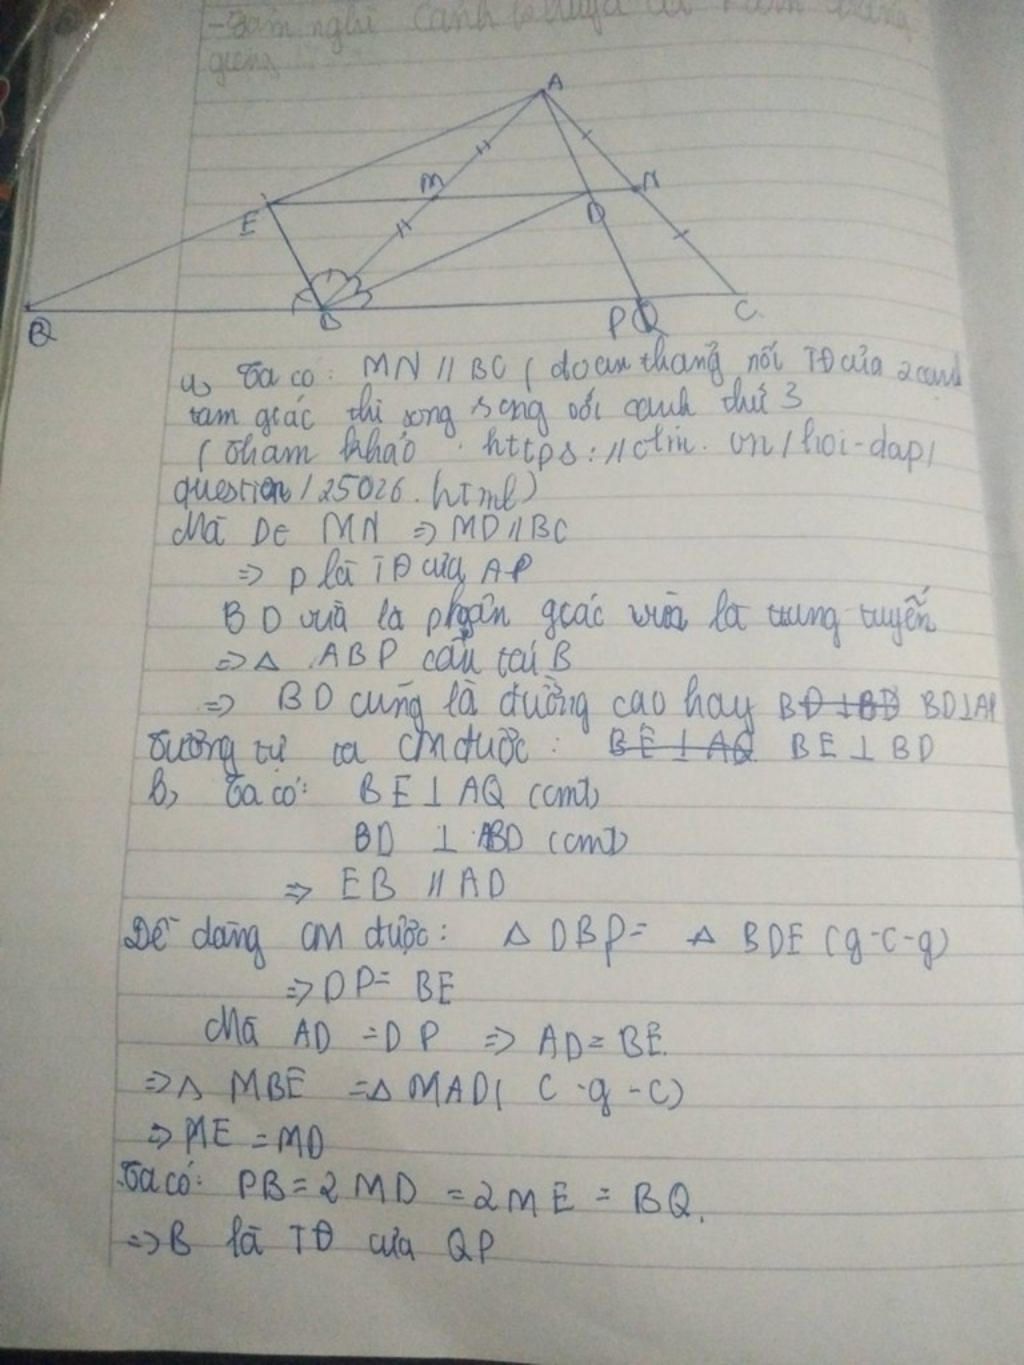 - Tam nghi Canh
A
M
N
E
D
Q
B
P Q
C
a, Ta có: MN // BC ( đoạn thẳng nối TĐ của 2 cạnh
tam giác thì song song với cạnh thứ 3
( Tham khảo : https://olm.vn/hoi-dap/
question/25026.html)
Mà D ∈ MN ⇒ MD // BC
⇒ D là TĐ của AP
BD vừa là phân giác vừa là trung tuyến
⇒ Δ ABP cân tại B
⇒ BD cũng là đường cao hay BD ⊥ BD BD ⊥ AP
Tương tự ta CM được: BE ⊥ AQ BE ⊥ BD
b, Ta có: BE ⊥ AQ (cmt)
BD ⊥ ABD (cmt)
⇒ EB // AD
Dễ dàng CM được: Δ DBP = Δ BDE (g-c-g)
⇒ DP = BE
Mà AD = DP ⇒ AD = BE.
⇒ Δ MBE = Δ MAD( C-g-C)
⇒ ME = MD
Ta có: PB = 2MD = 2ME = BQ.
⇒ B là TĐ của QP